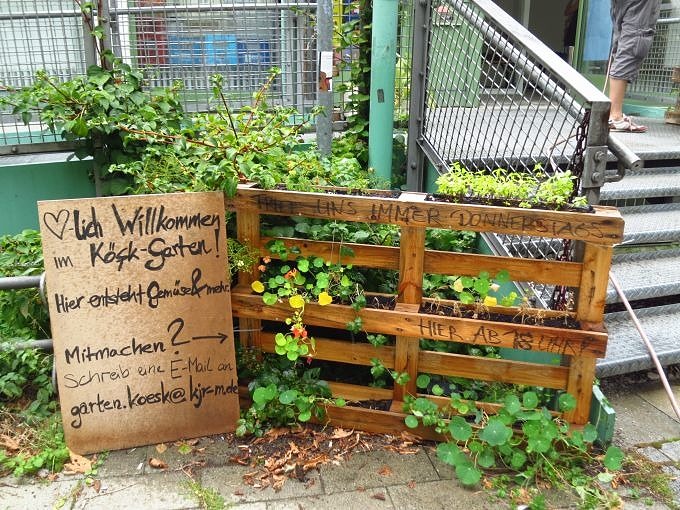 ♡lich Willkommen
im Köşk-Garten!
Hier entsteht Gemüse & mehr.
Mitmachen? →
Schreib eine E-Mail an
garten.koesk@kjr-m.de
TRIFF UNS IMMER DONNERSTAGS
HIER AB 18 UHR!